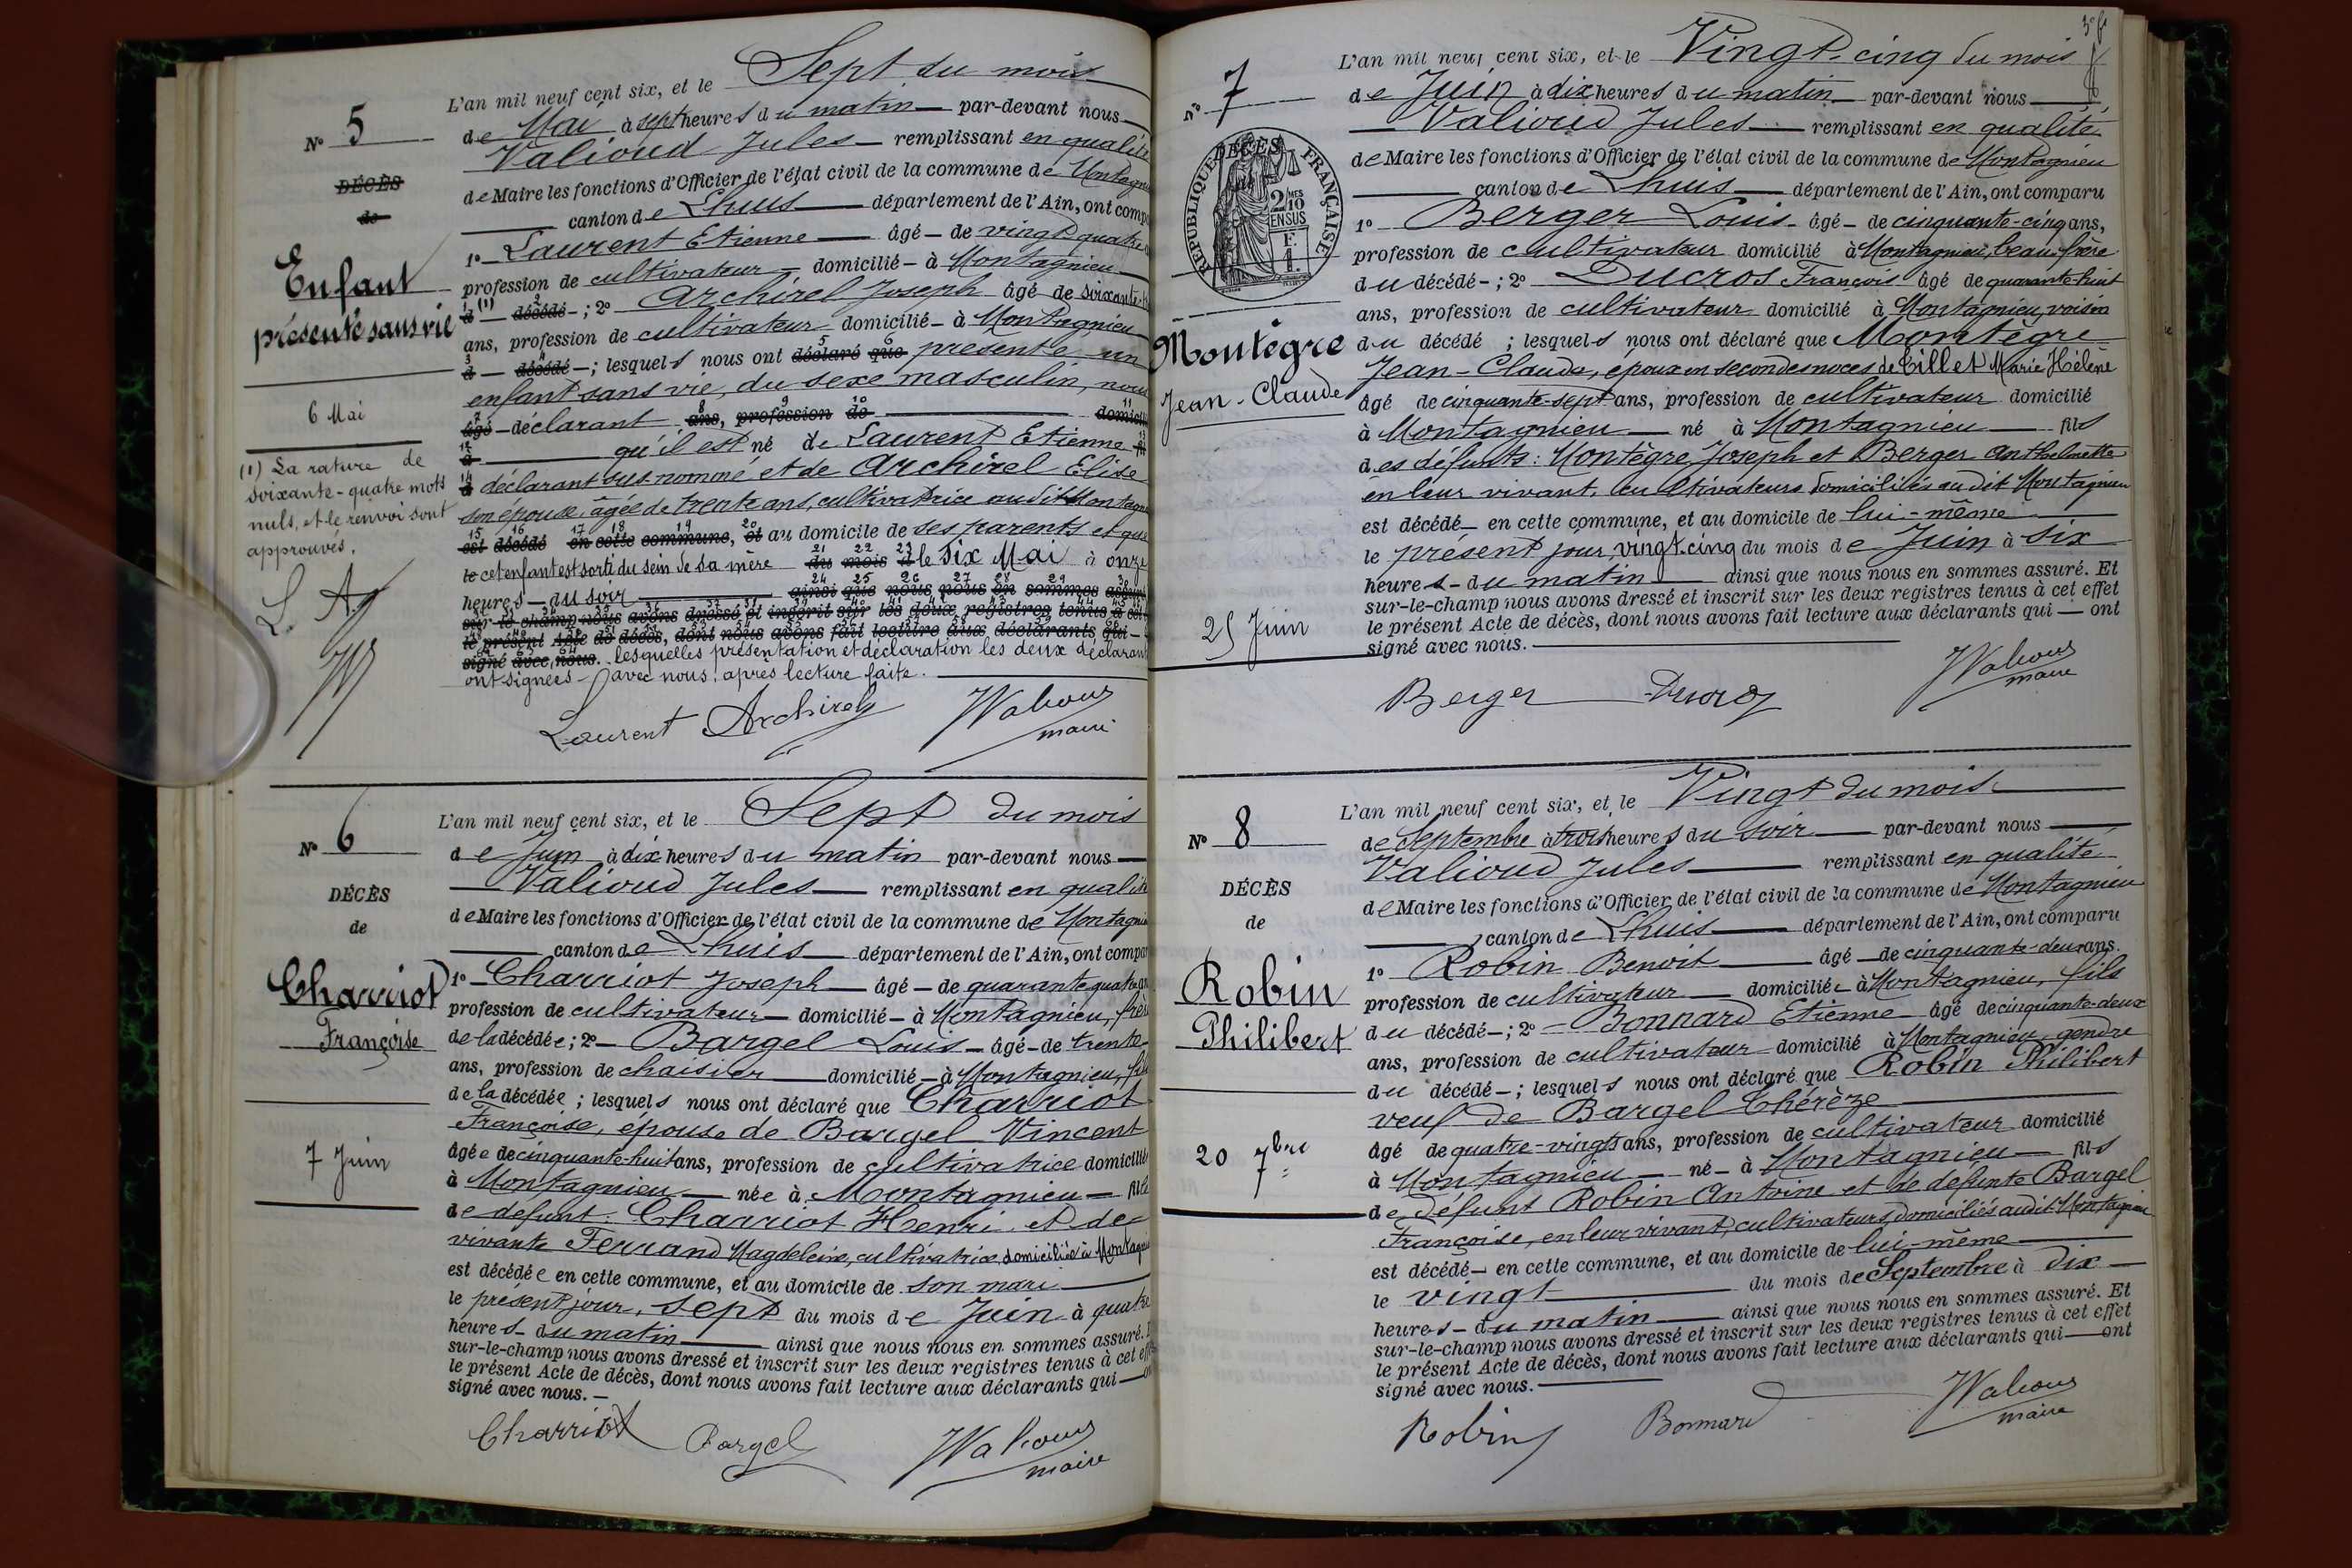 N° 5
DÉCÈS
de
Enfant
présenté sans vie
6 Mai
(1) La rature de
soixante-quatre mots
nuls, et le renvoi sont
approuvés.
L. A.
L'an mil neuf cent six, et le Sept du mois
de Mai à sept heures du matin par-devant nous
Valioud Jules remplissant en qualité
de Maire les fonctions d'Officier de l'état civil de la commune de Montagnieu
canton de Lhuis département de l'Ain, ont comparu
1° Laurent Etienne âgé de vingt quatre
profession de cultivateur domicilié à Montagnieu
d (1) décédé ; 2° Archirel Joseph âgé de soixante
ans, profession de cultivateur domicilié à Montagnieu
d décédé ; lesquels nous ont déclaré que présenté un
enfant sans vie, du sexe masculin, nous
âgé déclarant ans, profession de domicilié
à qu'il est né de Laurent Etienne
d déclarant sus-nommé et de Archirel Elise
son épouse, âgée de trente ans, cultivatrice audit Montagnieu
est décédé en cette commune, et au domicile de ses parents et que
le cet enfant est sorti du sein de sa mère du mois d le six Mai à onze
heures du soir ainsi que nous nous en sommes assuré
sur-le-champ nous avons dressé et inscrit sur les deux registres tenus à cet
le présent Acte de décès, dont nous avons fait lecture aux déclarants qui
signé avec nous. lesquelles présentation et déclaration les deux déclarants
ont signées avec nous, après lecture faite.
Laurent Archirel JValioud
maire
N° 6
DÉCÈS
de
Charriot
Françoise
7 Juin
L'an mil neuf cent six, et le Sept du mois
de Juin à dix heures du matin par-devant nous
Valioud Jules remplissant en qualité
de Maire les fonctions d'Officier de l'état civil de la commune de Montagnieu
canton de Lhuis département de l'Ain, ont comparu
1° Charriot Joseph âgé de quarante quatre ans
profession de cultivateur domicilié à Montagnieu, frère
de la décédée ; 2° Bargel Louis âgé de trente
ans, profession de chaisier domicilié à Montagnieu, fils
de la décédée ; lesquels nous ont déclaré que Charriot
Françoise, épouse de Bargel Vincent
âgée de cinquante-huit ans, profession de cultivatrice domiciliée
à Montagnieu née à Montagnieu fille
de défunt : Charriot Henri et de
vivante Ferrand Magdeleine, cultivatrice, domiciliée à Montagnieu
est décédée en cette commune, et au domicile de son mari
le présent jour, sept du mois de Juin à quatre
heures du matin ainsi que nous nous en sommes assuré. Et
sur-le-champ nous avons dressé et inscrit sur les deux registres tenus à cet effet
le présent Acte de décès, dont nous avons fait lecture aux déclarants qui ont
signé avec nous.
Charriot Bargel JValioud
maire
N° 7
RÉPUBLIQUE FRANÇAISE
DÉCÈS
de
2 MES
10
EN SUS
Montègre
Jean-Claude
25 Juin
L'an mil neuf cent six, et le Vingt-cinq du mois
de Juin à dix heures du matin par-devant nous
Valioud Jules remplissant en qualité
de Maire les fonctions d'Officier de l'état civil de la commune de Montagnieu
canton de Lhuis département de l'Ain, ont comparu
1° Berger Louis âgé de cinquante-cinq ans,
profession de cultivateur domicilié à Montagnieu, beau-frère
du décédé ; 2° Ducros François âgé de quarante-huit
ans, profession de cultivateur domicilié à Montagnieu, voisin
du décédé ; lesquels nous ont déclaré que Montègre
Jean-Claude, époux en secondes noces de Billet Marie Hélène
âgé de cinquante-sept ans, profession de cultivateur domicilié
à Montagnieu né à Montagnieu fils
des défunts : Montègre Joseph et Berger Anthelmette
en leur vivant, cultivateurs domiciliés au dit Montagnieu
est décédé en cette commune, et au domicile de lui-même
le présent jour, vingt-cinq du mois de Juin à six
heures du matin ainsi que nous nous en sommes assuré. Et
sur-le-champ nous avons dressé et inscrit sur les deux registres tenus à cet effet
le présent Acte de décès, dont nous avons fait lecture aux déclarants qui ont
signé avec nous.
Berger Ducros JValioud
maire
N° 8
DÉCÈS
de
Robin
Philibert
20 7bre
L'an mil neuf cent six, et le Vingt du mois
de Septembre à trois heures du soir par-devant nous
Valioud Jules remplissant en qualité
de Maire les fonctions d'Officier de l'état civil de la commune de Montagnieu
canton de Lhuis département de l'Ain, ont comparu
1° Robin Benoit âgé de cinquante-deux ans.
profession de cultivateur domicilié à Montagnieu, fils
du décédé ; 2° Bonnard Etienne âgé de cinquante-deux
ans, profession de cultivateur domicilié à Montagnieu, gendre
du décédé ; lesquels nous ont déclaré que Robin Philibert
veuf de Bargel Thérèze
âgé de quatre-vingts ans, profession de cultivateur domicilié
à Montagnieu né à Montagnieu fils
de défunt Robin Antoine et de défunte Bargel
Françoise, en leur vivant, cultivateurs, domiciliés audit Montagnieu
est décédé en cette commune, et au domicile de lui-même
le vingt du mois de Septembre à dix
heures du matin ainsi que nous nous en sommes assuré. Et
sur-le-champ nous avons dressé et inscrit sur les deux registres tenus à cet effet
le présent Acte de décès, dont nous avons fait lecture aux déclarants qui ont
signé avec nous.
Robin Bonnard JValioud
maire